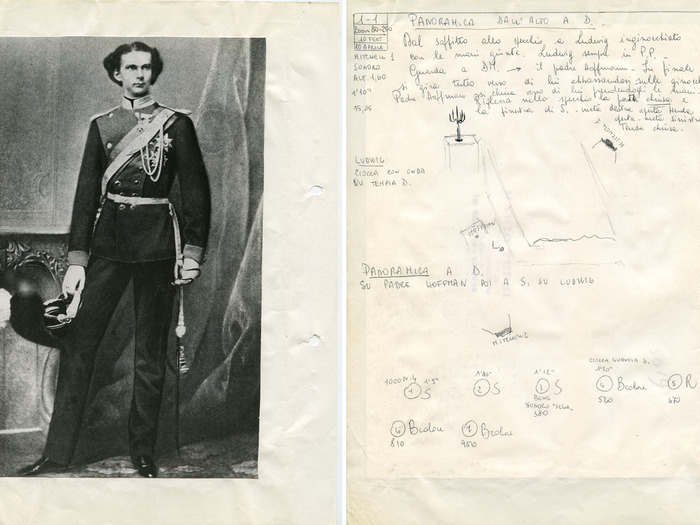 1-1
PANORAMICA DALL'ALTO A D.
ROOM 50-250
10 FEET
10 APRILE
MITCHELL 1
SONORO
ALT. 1,60
1'10"
15,05
Dal soffitto allo specchio a Ludwig inginocchiato
con le mani giunte. Ludwig sempre in P.P.
Guarda a DM → il padre Hoffmann. In finale
si gira tutto verso di lui abbassandosi sulle ginocchia
Padre Hoffman si china verso di lui prendendogli le mani.
nello specchio la porta chiusa e
la finestra di S. metà destra aperta tenda
aperta - metà sinistra
Tenda chiusa.
LUDWIG
CIOCCA CON ONDA
SU TEMPIA D.
HOFFMAN
L.
PANORAMICA A D.
SU PADRE HOFFMAN POI A S. SU LUDWIG
MITCHELL
CIOCCA GUANCIA D.
1000 N.4 1'5" 1'10" 1'12" 1'20"
1 S 2 S 3 S 4 Bcolore 5 R
BENE
SONORO
380 520 670
6 Bcolore 7 Bcolore
810 950